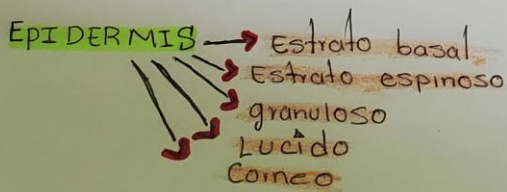 EPIDERMIS
Estrato basal
Estrato espinoso
granuloso
Lucido
Corneo